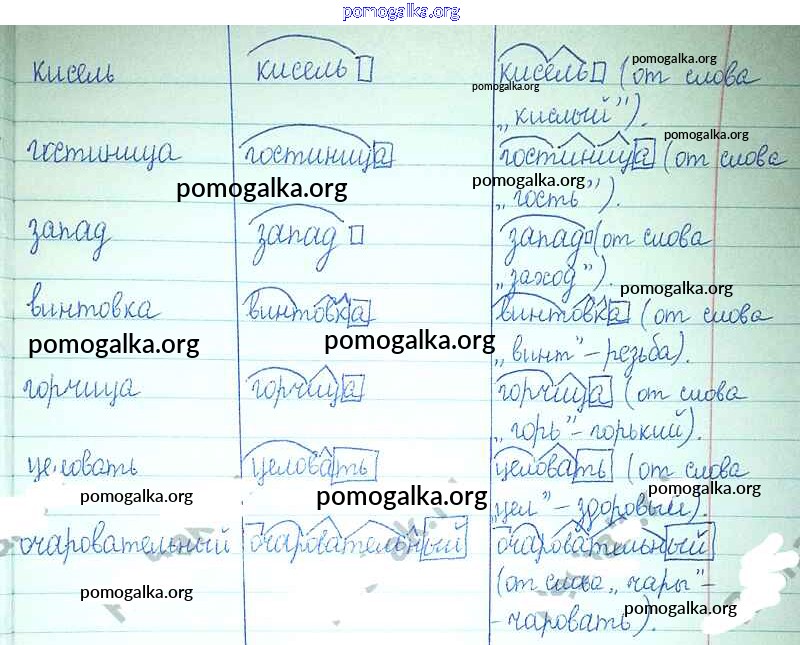 pomogalka.org
кисель кисель кисель (от слова
pomogalka.org
pomogalka.org
„кислый").
pomogalka.org
гостиница гостиница гостиница (от слова
pomogalka.org pomogalka.org
„гость").
запад запад запад (от слова
„заход").
pomogalka.org
винтовка винтовка винтовка (от слова
pomogalka.org pomogalka.org
„винт" – резьба).
горчица горчица горчица (от слова
pomogalka.org
„горь" – горький).
целовать целовать целовать (от слова
pomogalka.org pomogalka.org pomogalka.org
„цел" – здоровый).
очаровательный очаровательный очаровательный
pomogalka.org
(от слова „чары" –
pomogalka.org
– чаровать).